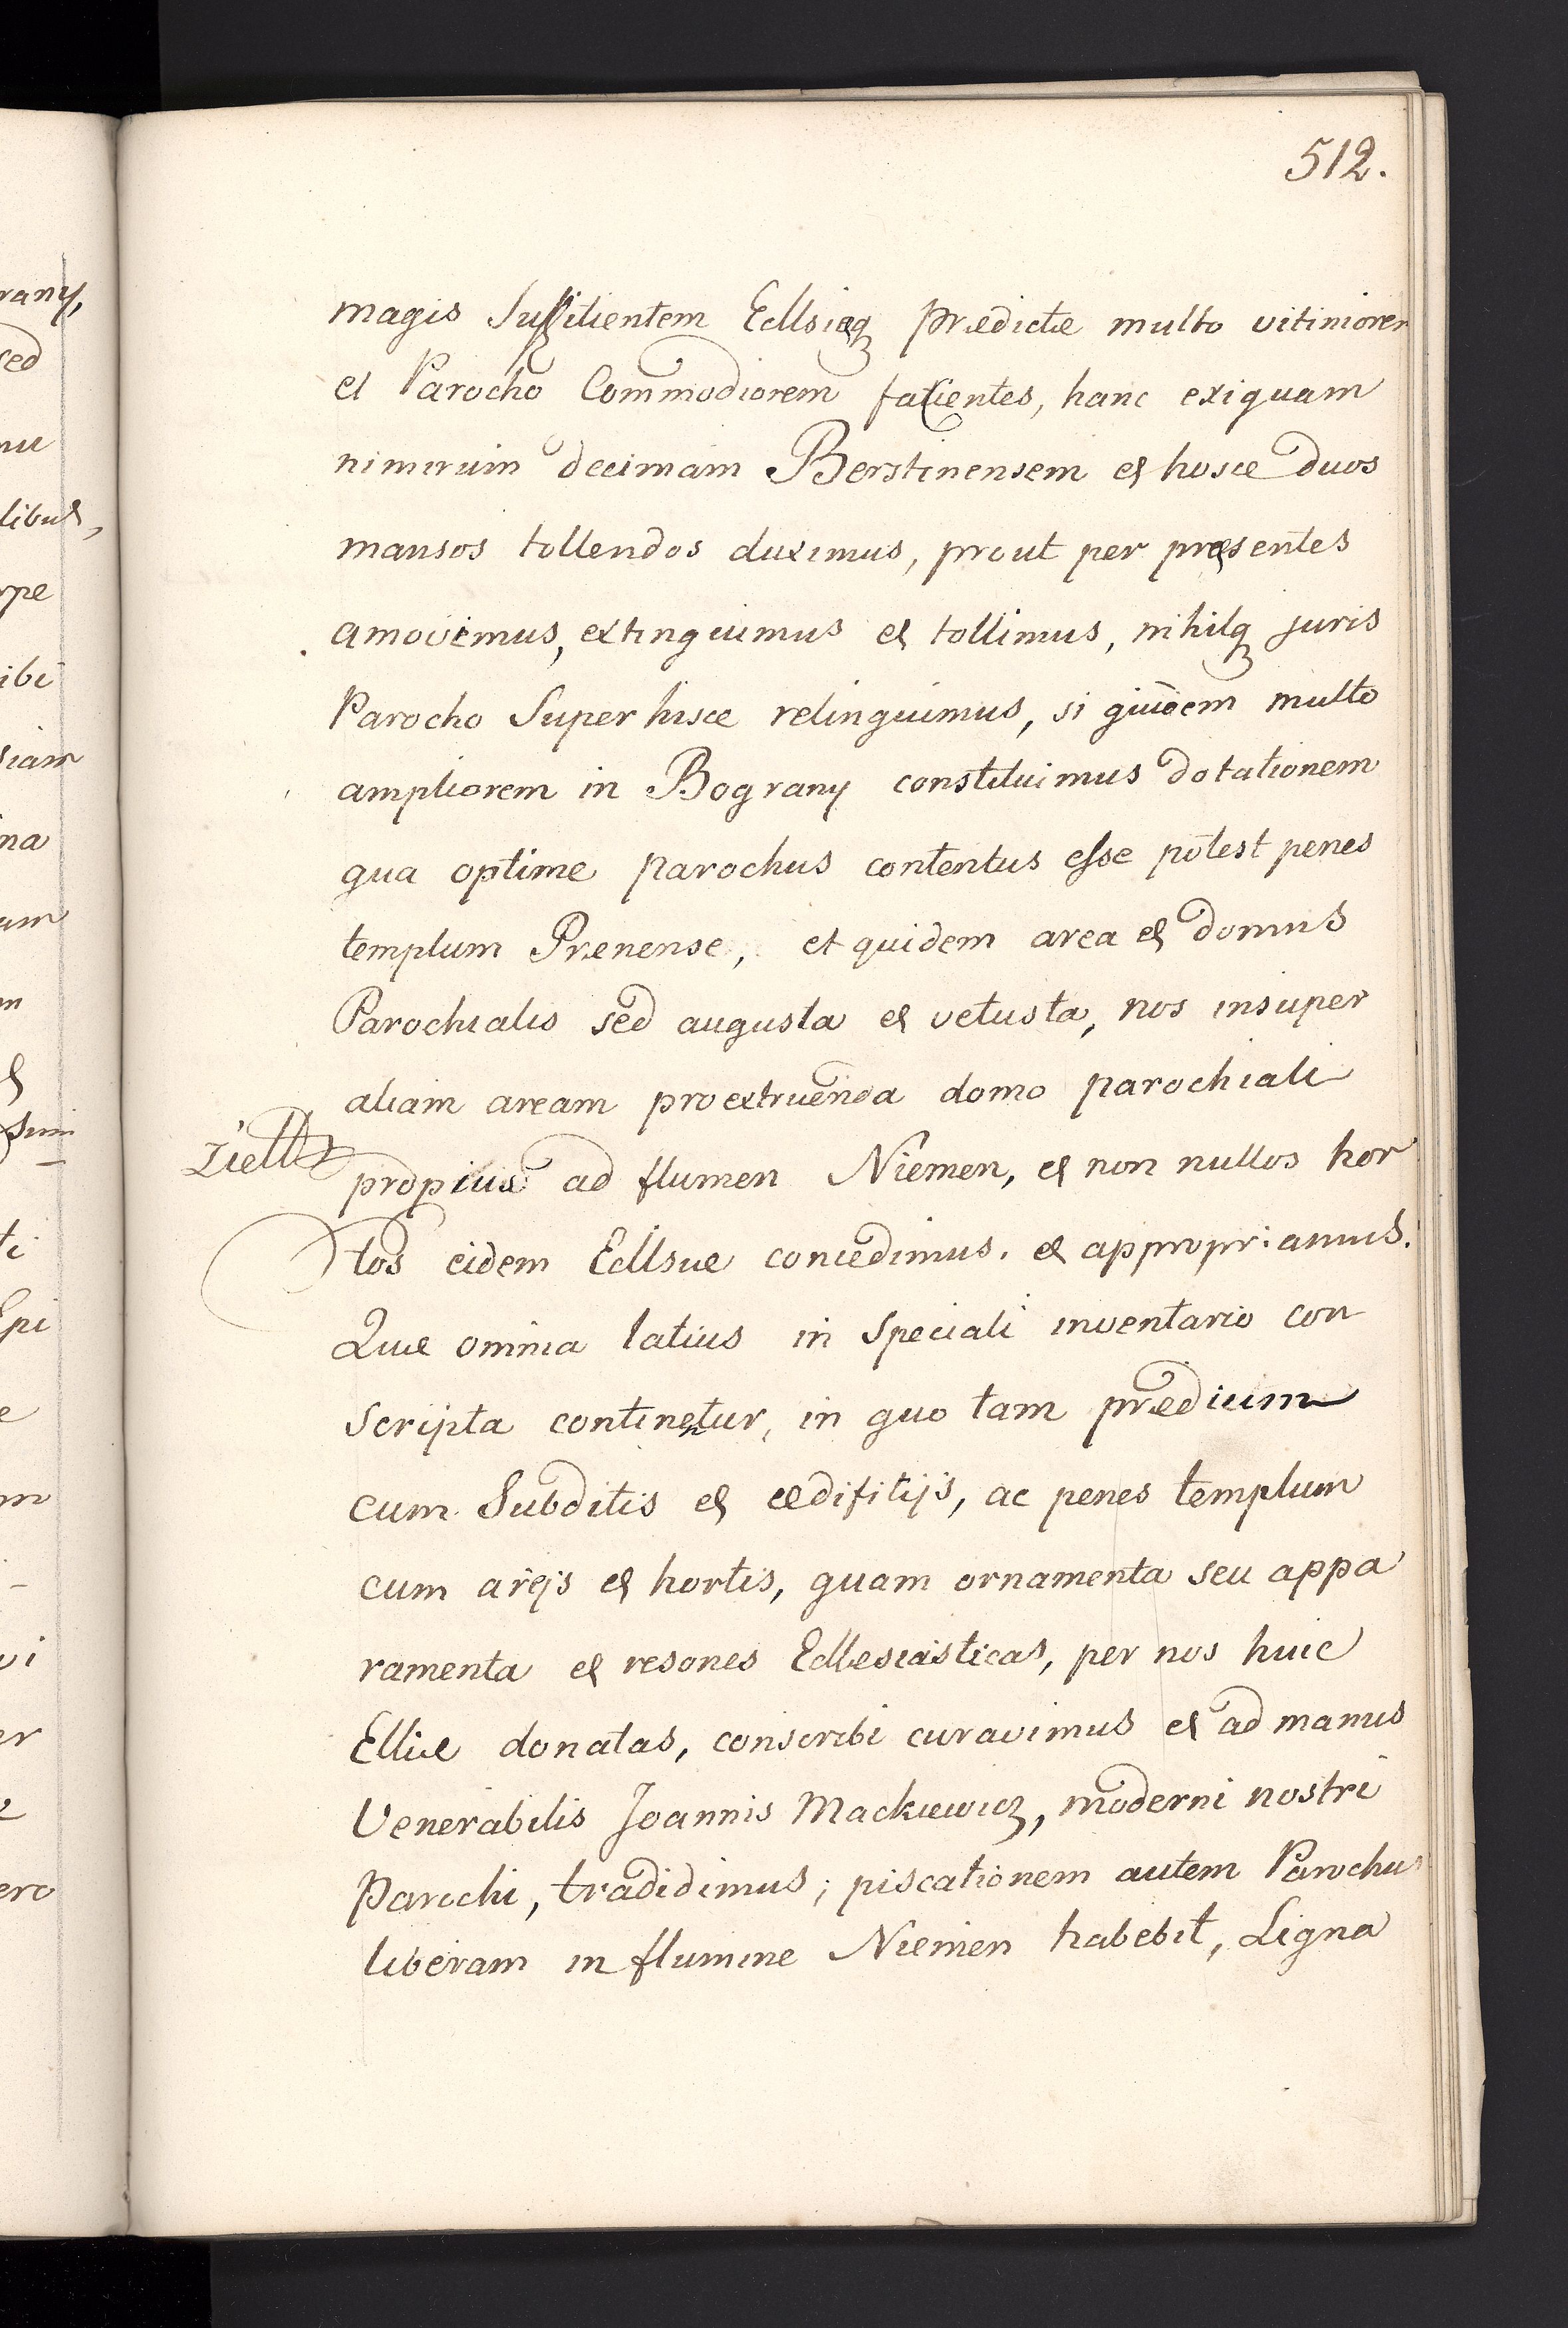 512.
magis Suffitientem Ecllsiæq prædictæ multo vitiniorem
et Parocho Commodiorem facientes, hanc exiguam
nimirum decimam Berstinensem et hosce duos
mansos tollendos duximus, prout per præsentes
amovemus, extinguimus et tollimus, nihilq juris
Parocho Super hisce relinquimus, si quidem multo
ampliorem in Bograny constituimus dotationem
qua optime parochus contentus esse potest penes
templum Prenense, et quidem area et domus
Parochialis sed augusta et vetusta, nos insuper
aliam aream pro extruenda domo parochiali
propius ad flumen Niemen, et non nullos hor
tos eidem Ecllsiæ concedimus. et appropriamus.
Quæ omnia latius in Speciali inventario con
scripta continentur, in quo tam prædium
cum Subditis et ædifitijs, ac penes templum
cum arejs et hortis, quam ornamenta seu appa
ramenta et resones Ecllesiasticas, per nos huic
Elliæ donatas, conscribi curavimus et ad manus
Venerabilis Joannis Mackiewicz, moderni nostri
Parochi, tradidimus; piscationem autem Parochus
liberam in flumine Niemen habebit, Ligna